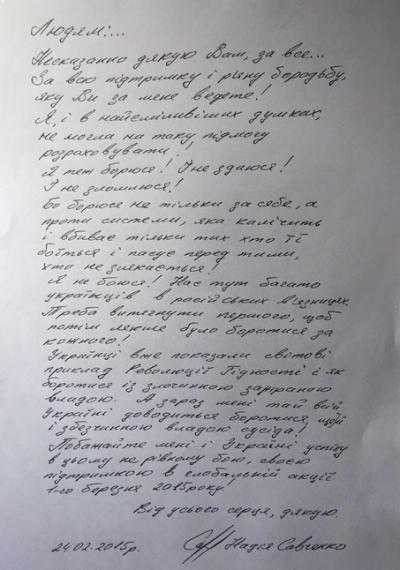 Людям:...
Несказанно дякую Вам, за все...
За всю підтримку і рівну боротьбу,
яку Ви за мене ведете!
Я, і в найсміливіших думках,
не могла на таку підмогу
розраховувати!
Я тет борюся! І не здаюся!
І не зломлюся!
Бо борюся не тільки за себе, а
проти системи, яка калічить
і вбиває тільки тих хто її
боїться і пасує перед тими,
хто не злякається!
Я не боюся! Нас тут багато
українців в російських в'язницях.
Треба витягнути першого, щоб
потім легше було боротися за
кожного!
Українці вже показали світові
приклад Революції Гідності і як
боротися із злочинною
владою. А зараз мені та й всій
Україні доводиться боротися, щоби
і збезчинною владою сусіда!
Побажайте мені і Україні успіху
в цьому не рівному бою, своєю
підтримкою в глобальній акції
1-го березня 2015року
Від усього серця, дякую.
24.02.2015р. Надія Савченко